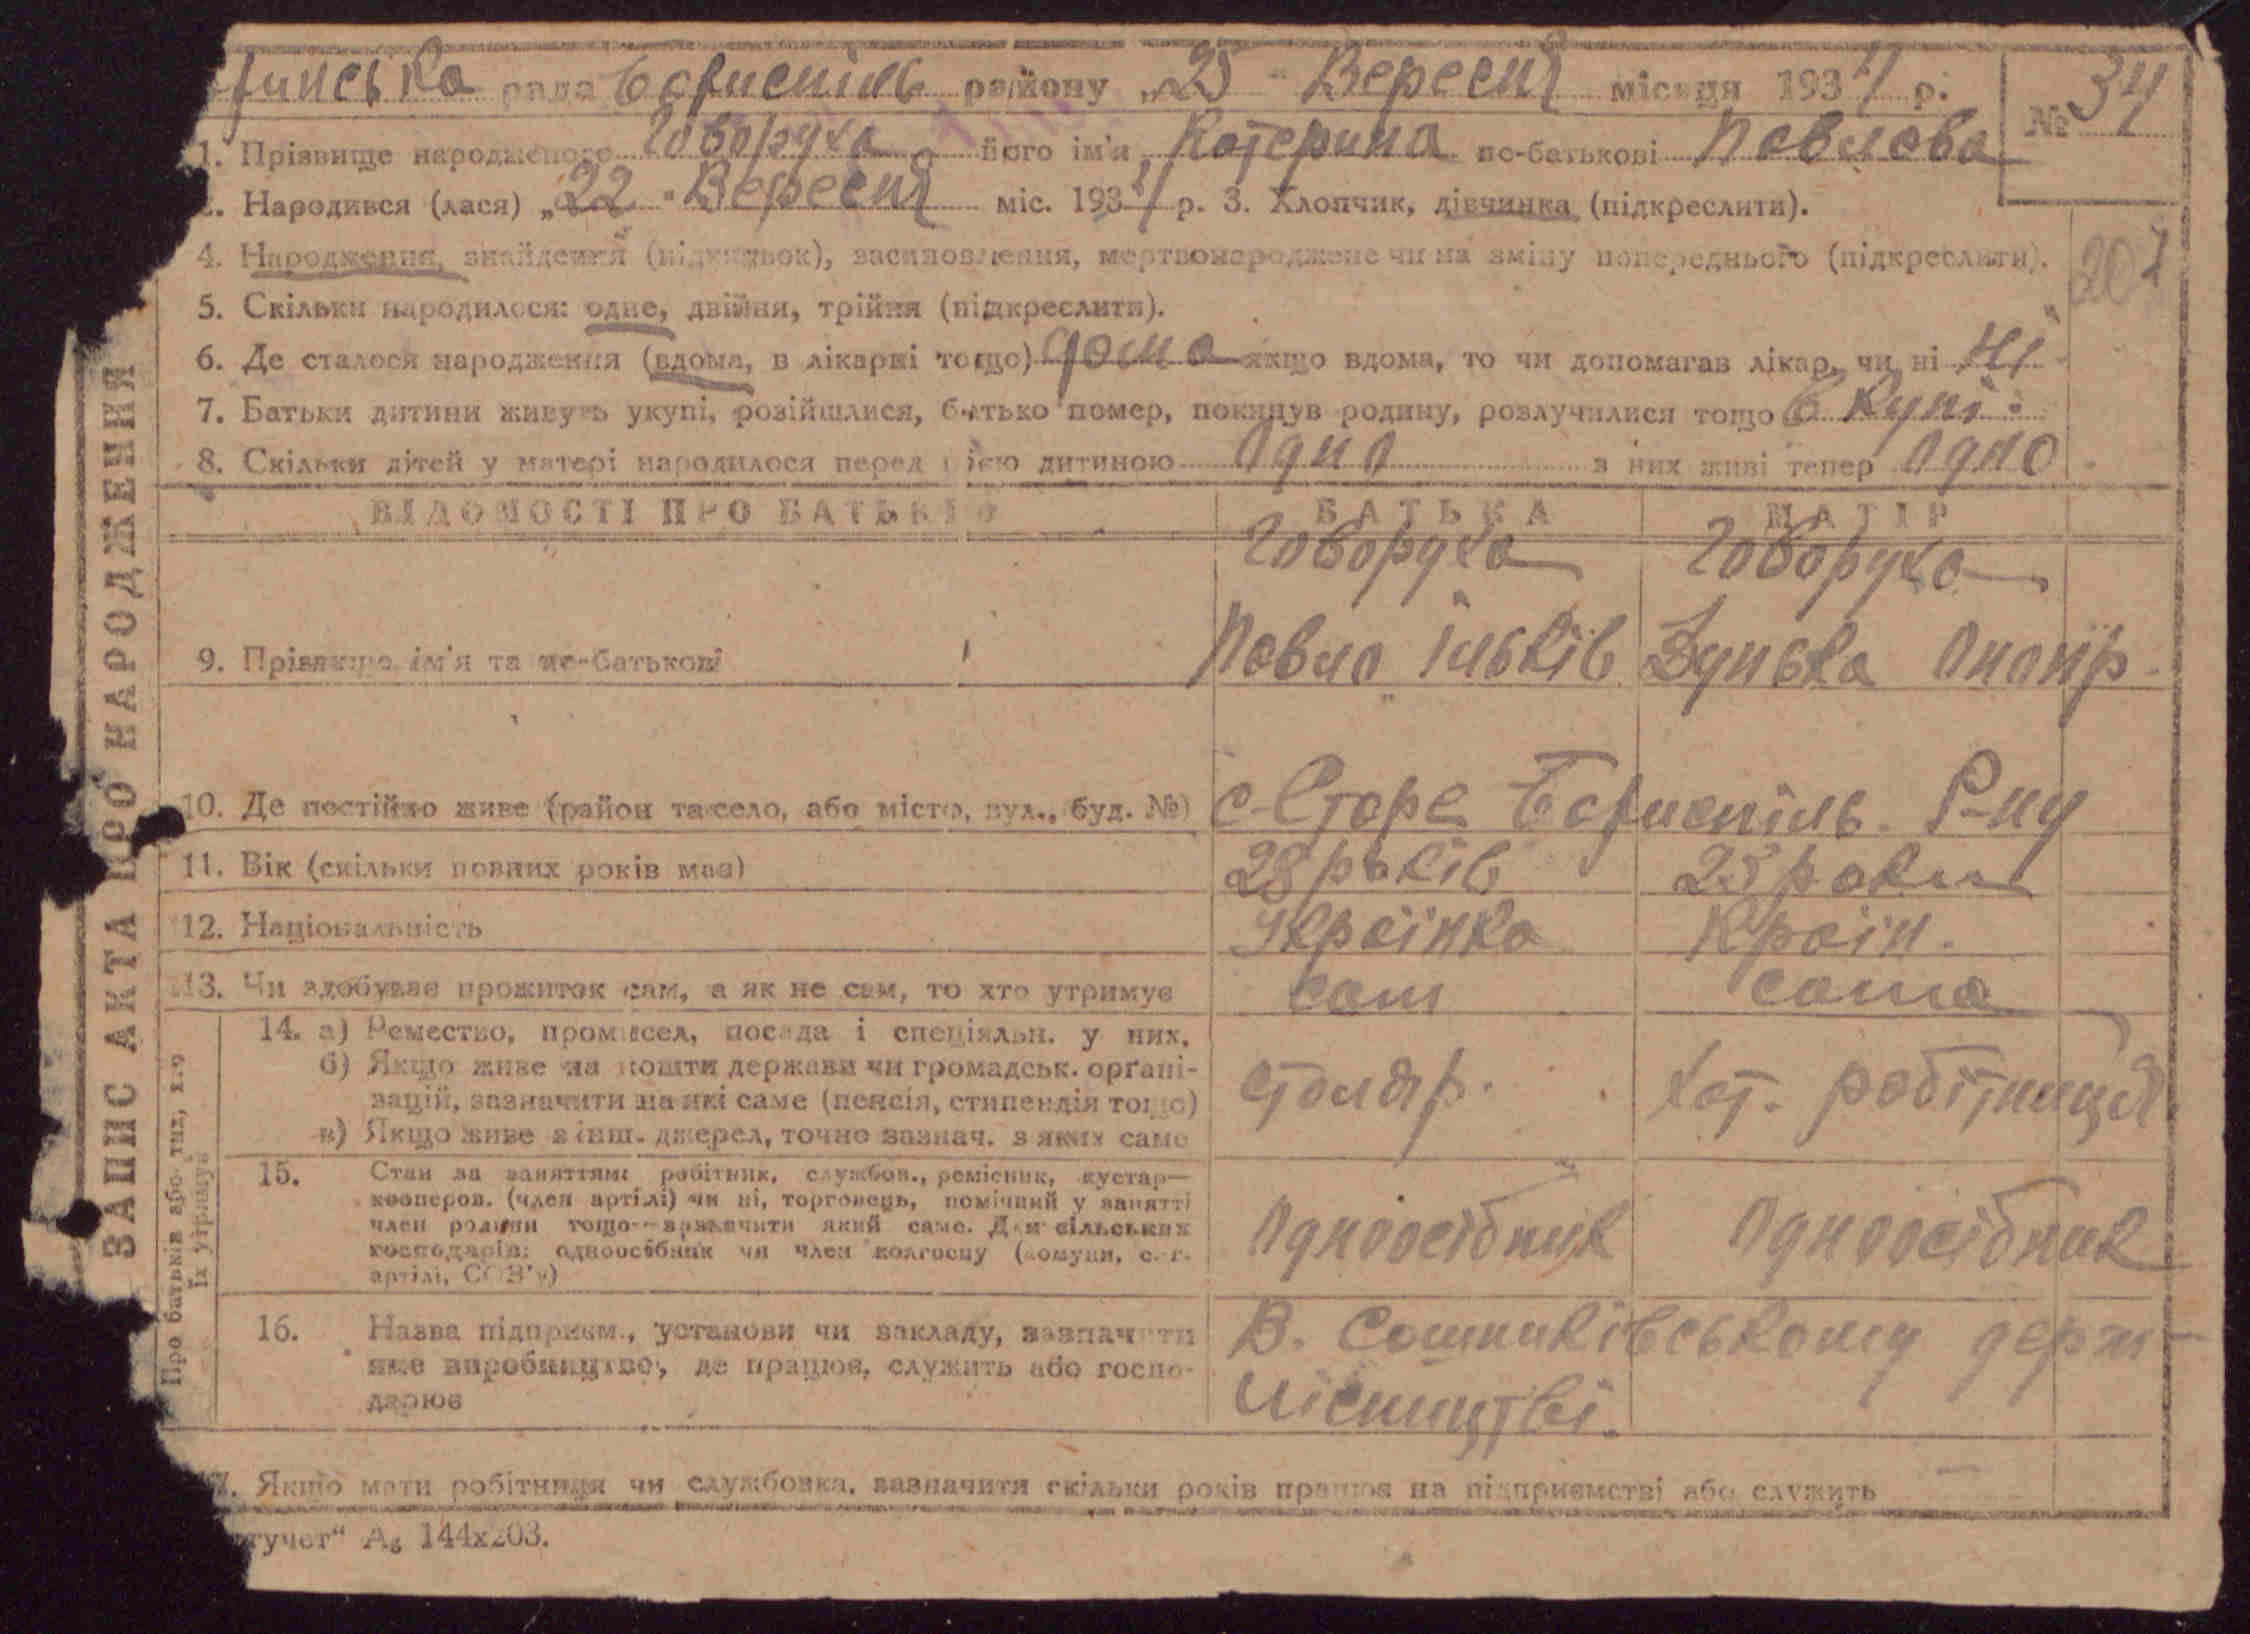 рада Бориспіль району „25" Вересня місяця 1934 р.
№ 34
1. Прізвище народженого Говоруха його ім'я Котерина по-батькові Повлова
Народився (лася) „22" Вересня міс. 1934 р. 3. Хлопчик, дівчинка (підкреслити).
4. Народження, знайдення (підкидьок), засиновлення, мертвонароджене чи на зміну попереднього (підкреслити).
207
5. Скільки народилося: одне, двійня, трійня (підкреслити).
6. Де сталося народження (вдома, в лікарні тощо) дома якщо вдома, то чи допомагав лікар, чи ні Ні
7. Батьки дитини живуть укупі, розійшлися, батько помер, покинув родину, розлучилися тощо в купі
8. Скільки дітей у матері народилося перед цією дитиною одно з них живі тепер одно
ВІДОМОСТІ ПРО БАТЬКІВ БАТЬКА МАТІР
Говоруха Говоруха
9. Прізвище, ім'я та по-батькові Повло Ільків Зунька
10. Де постійно живе (район та село, або місто, вул., буд. №) с-Старе Бориспіль. Р-ну
11. Вік (скільки повних років має) 28 років 25 роки
12. Національність Україінка Країн.
13. Чи здобуває прожиток сам, а як не сам, то хто утримує сам сама
14. а) Ремество, промисел, посада і спеціяльн. у них.
б) Якщо живе на кошти держави чи громадськ. орґані-
зацій, зазначити на які саме (пенсія, стипендія тощо) столяр. хат. робітниця
в) Якщо живе з інш. джерел, точно зазнач. з яких саме
15. Стан за заняттям: робітник, службов., ремісник, кустар—
кооперов. (член артілі) чи ні, торговець, помічний у занятті
член родини тощо—зазначити який саме. Для сільських
господарів: одноосібник чи член колгоспу (комуни, с.-г. одноосібник одноосібник
артілі, СОЗ'у)
16. Назва підприєм., установи чи закладу, зазначити В. Сошниківському держ-
яке виробництво, де працює, служить або госпо-
дарює лісництві.
7. Якщо мати робітниця чи службовка, зазначити скільки років працює на підприємстві або служить —
144х203.
ЗАПИС АКТА ПРО НАРОДЖЕННЯ
Про батьків або тих, х.ч.
їх утримує